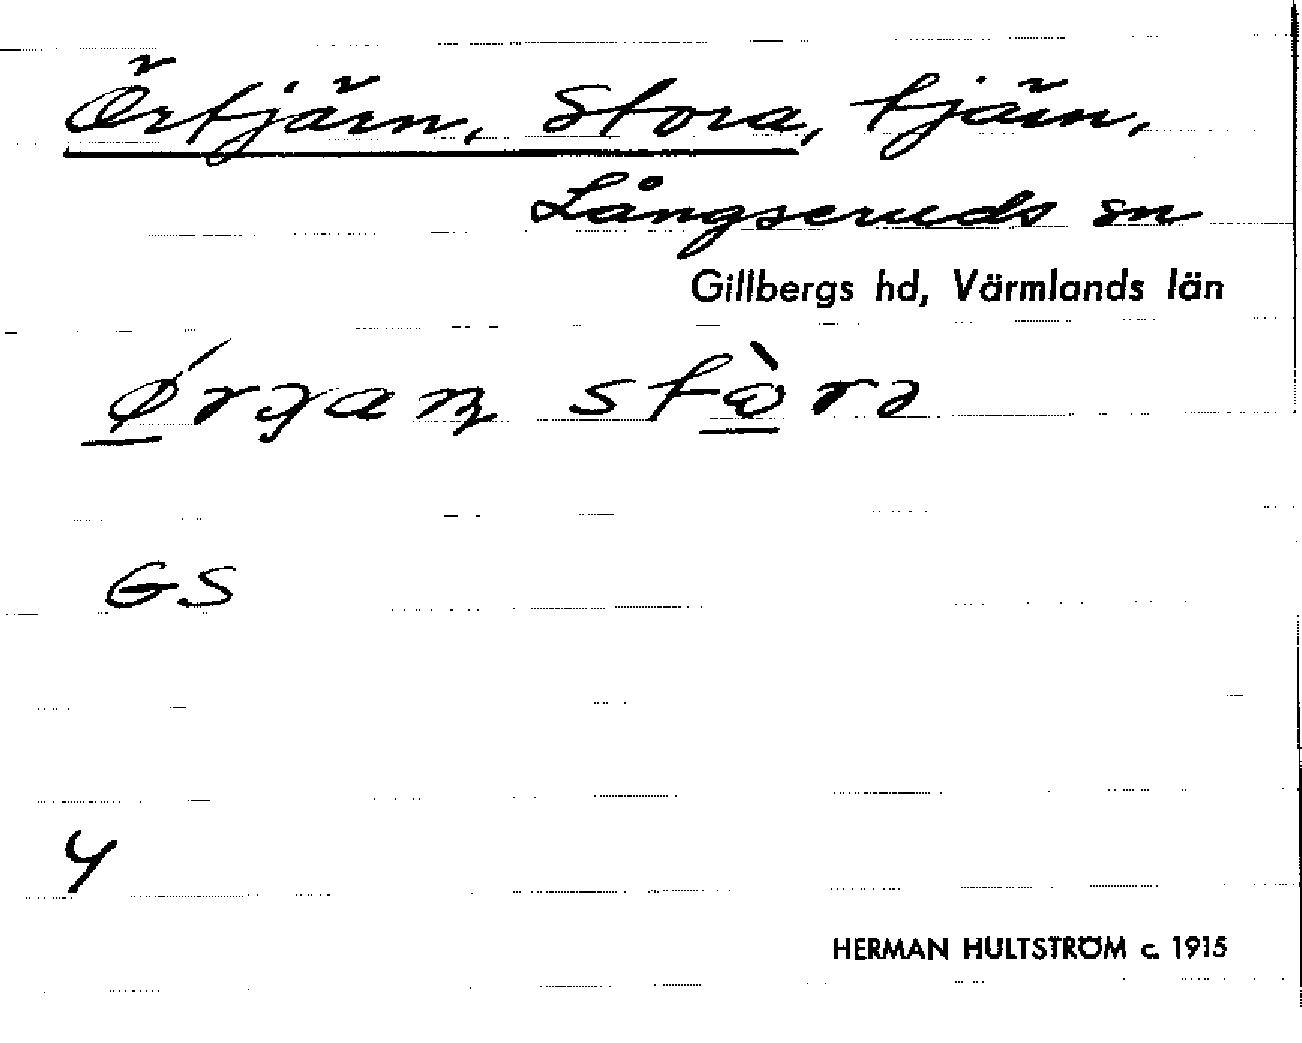 Örtjärn, Stora, tjärn,
Långseruds sn
Gillbergs hd, Värmlands län
GS
4
HERMAN HULTSTRÖM c. 1915